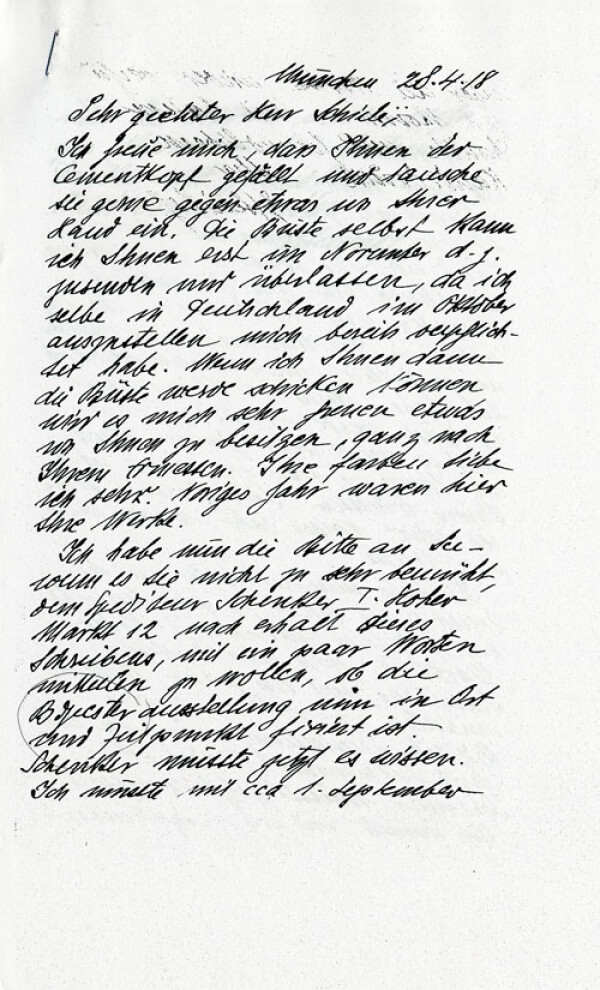 München 28.4.18
Sehr geehrter Herr Schiele,
Ich freue mich, dass Ihnen der
Cementkopf gefällt und tausche
sie gerne gegen etwas von Ihrer
Hand ein. Die Büste selbst kann
ich Ihnen erst im November d. J.
zusenden und überlassen, da ich
selbe in Deutschland im Oktober
auszustellen mich bereits verpflich-
tet habe. Wenn ich Ihnen dann
die Büste werde schicken können
wird es mich sehr freuen etwas
von Ihnen zu besitzen, ganz nach
Ihrem Ermessen. Ihre Farben liebe
ich sehr. Voriges Jahr waren hier
Ihre Werke.
Ich habe nun die Bitte an Sie –
wenn es Sie nicht zu sehr bemüht,
dem Spediteur Schenker I. Hoher
Markt 12 nach erhalt dieses
Schreibens, mit ein paar Worten
mitteilen zu wollen, ob die
ausstellung nun in Ort
und Zeitpunkt fixiert ist.
Schenker müsste jetzt es wissen.
Ich müsste mit cca 1. September